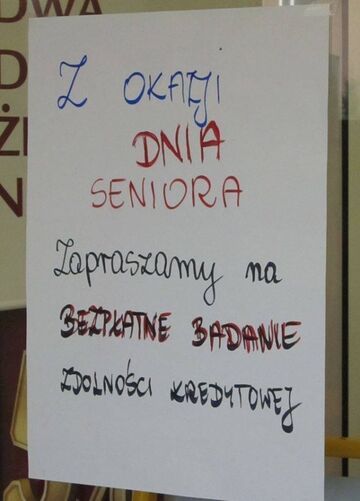 DWA
D
ŻE
N
Z OKAZJI
DNIA
SENIORA
Zapraszamy na
BEZPŁATNE BADANIE
ZDOLNOŚCI KREDYTOWEJ